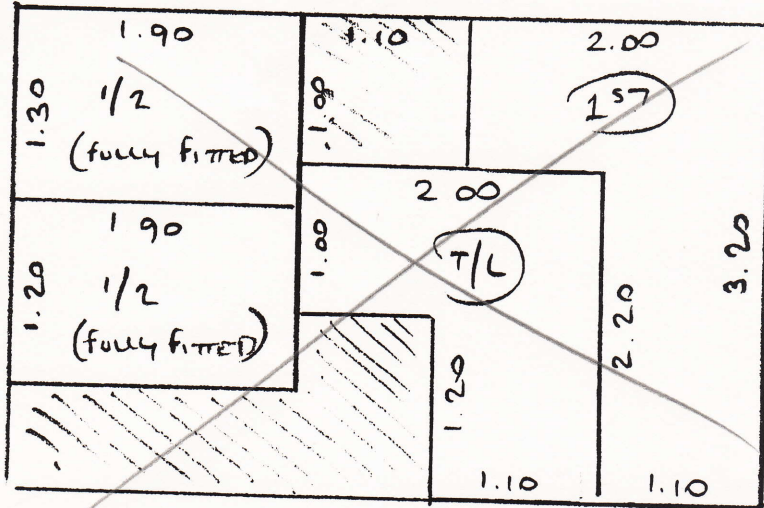 1.90
1.30
1/2
(fully fitted)
1.10
1.00
2.00
1ST
1 90
1.20
1/2
(fully fitted)
2 00
1.00
T/L
3.20
2.20
1.20
1.10
1.10